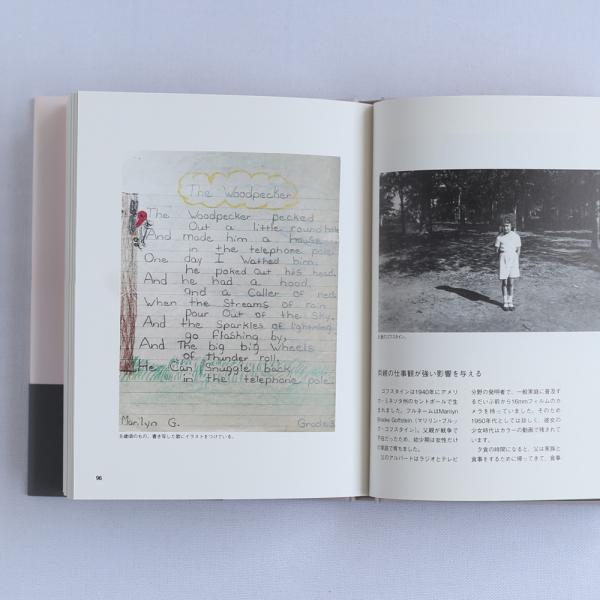 The Woodpecker
The Woodpecker pecked
Out a little round hole
And made him a house
in the telephone pole.
One day I Wathed him.
he poked out his head,
And he had a hood,
and a Coller of red.
When the Streams of rain
pour Out of the Sky.
And the Sparkles of lightning
go flashing by,
And The big big Wheels
of thunder roll,
He Can Snuggle back
in the telephone pole.
Marilyn G.
Grade 3
96
の仕事観が強い影響を与える
ゴフスタインは1940年にアメリ
ミネソタ州のセントポールで生
まれました。フルネームはMarilyn
Brooke Goffstein(マリリン・ブルッ
ク・ゴフスタイン)。父親が戦争で
不在だったため、幼少期は女性だけ
の家庭で育ちました。
父のアルバートはラジオとテレビ
分野の発明者で、一般家庭に普及す
るだいぶ前から16mmフィルムのカ
メラを持っていました。そのため
1950年代としては珍しく、彼女の
少女時代はカラーの動画で残されて
います。
夕食の時間になると、父は家族と
食事をするために帰ってきて、食事